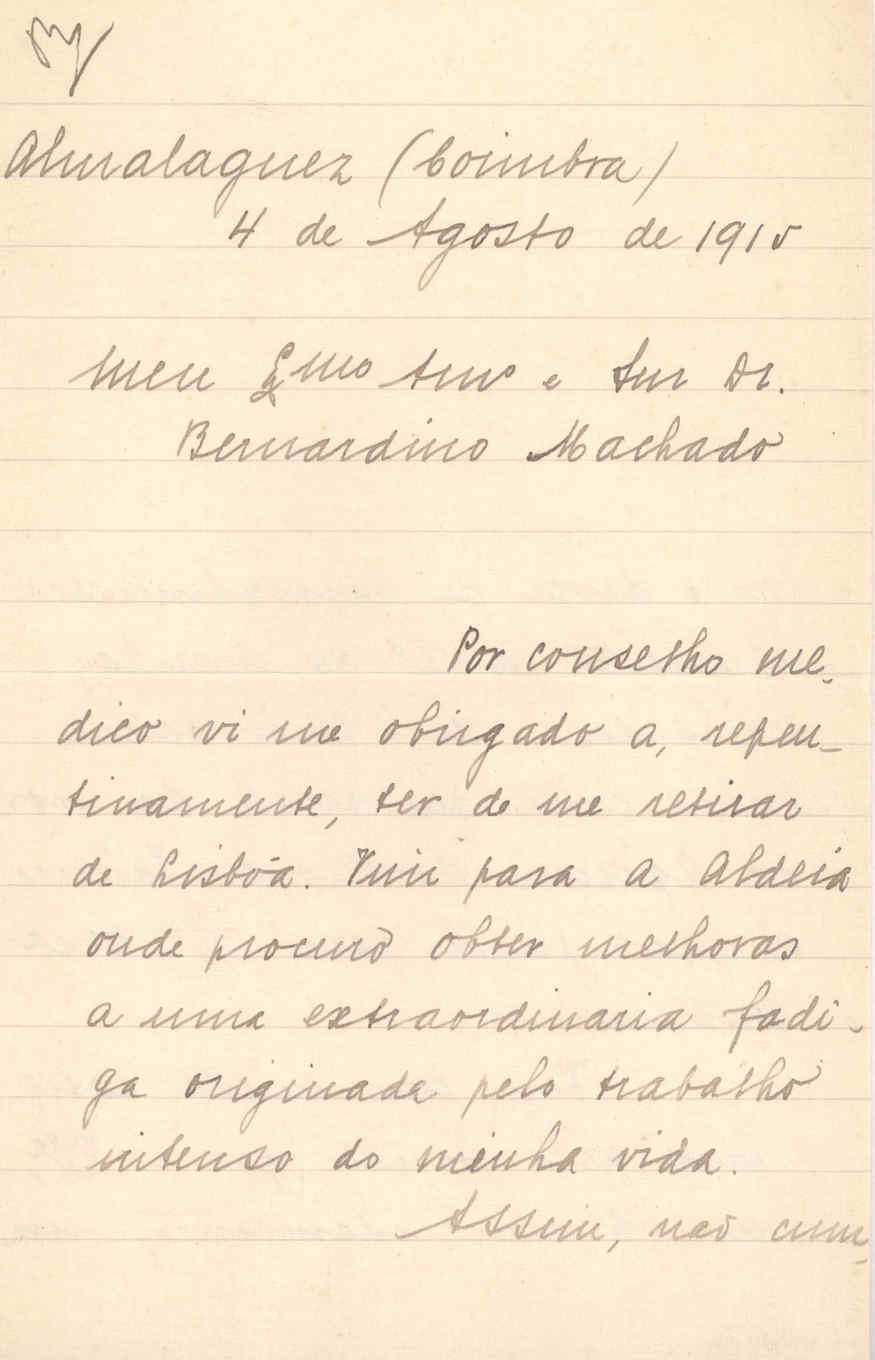 Almalaguez (Coimbra)
4 de Agosto de 1915
Meu Exmo Amo e Snr Dr.
Bernardino Machado
Por conselho me-
dico vi me obrigado a, repen-
tinamente, ter de me retirar
de Lisbôa. Vim para a Aldeia
onde procuro obter melhoras
a uma extraordinaria fadi-
ga originada pelo trabalho
intenso da minha vida.
Assim, não cum-